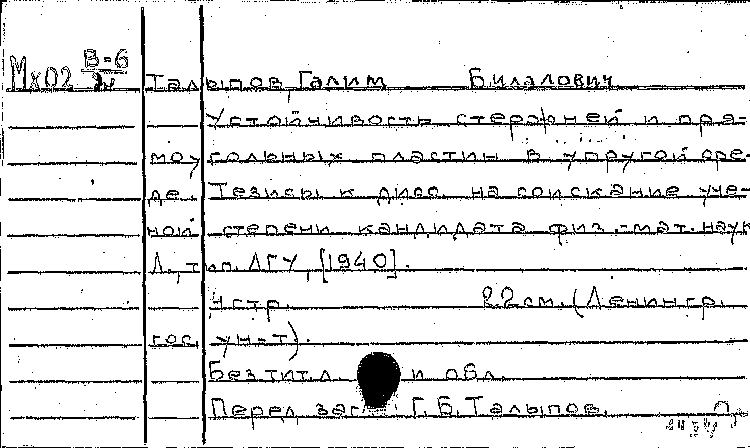 Мх02 В-6 Талыпов, Галим Билалович
Устойчивость стержней и пря-
моугольных пластин в упругой сре-
де. Тезисы к дисс. на соискание уче-
ной степени кандидата физ.-мат. наук
Л., тип. ЛГУ, [1940].
4 стр. 22 см. (Ленингр.
гос. ун-т).
Без тит. л и обл.
Перед заг Г. Б. Талыпов.